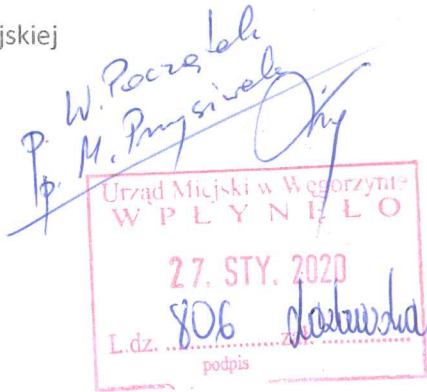 jskiej
p. W. Początek
p. M. Przysiwek
Urząd Miejski w Węgorzynie
WPŁYNĘŁO
27. STY. 2020
L.dz. 806 zał.
podpis